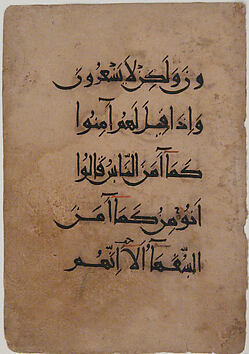 ون ولكن لا يشعرون
واذا قيل لهم آمنوا
كما آمن الناس قالوا
انؤمن كما آمن
السفهآء ألا انهم